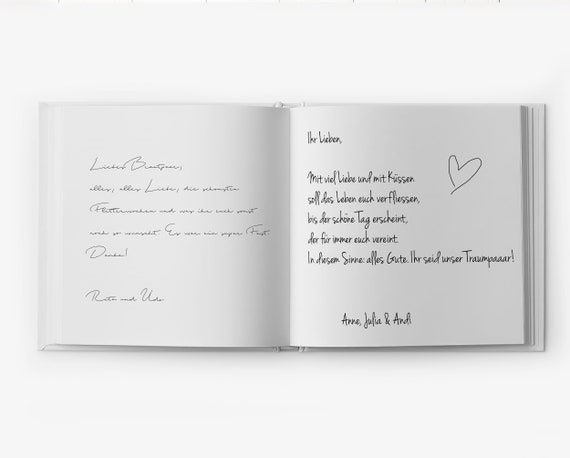 Liebes Brautpaar,
alles, alles Liebe, die schönsten
Flitterwochen und was ihr euch sonst
noch so wünscht. Es war ein super Fest
Danke!
Rita und Udo
Ihr Lieben,
Mit viel Liebe und mit Küssen
soll das Leben euch verfliessen,
bis der schöne Tag erscheint,
der für immer euch vereint.
In diesem Sinne: alles Gute. Ihr seid unser Traumpaaar!
Anne, Julia & Andi